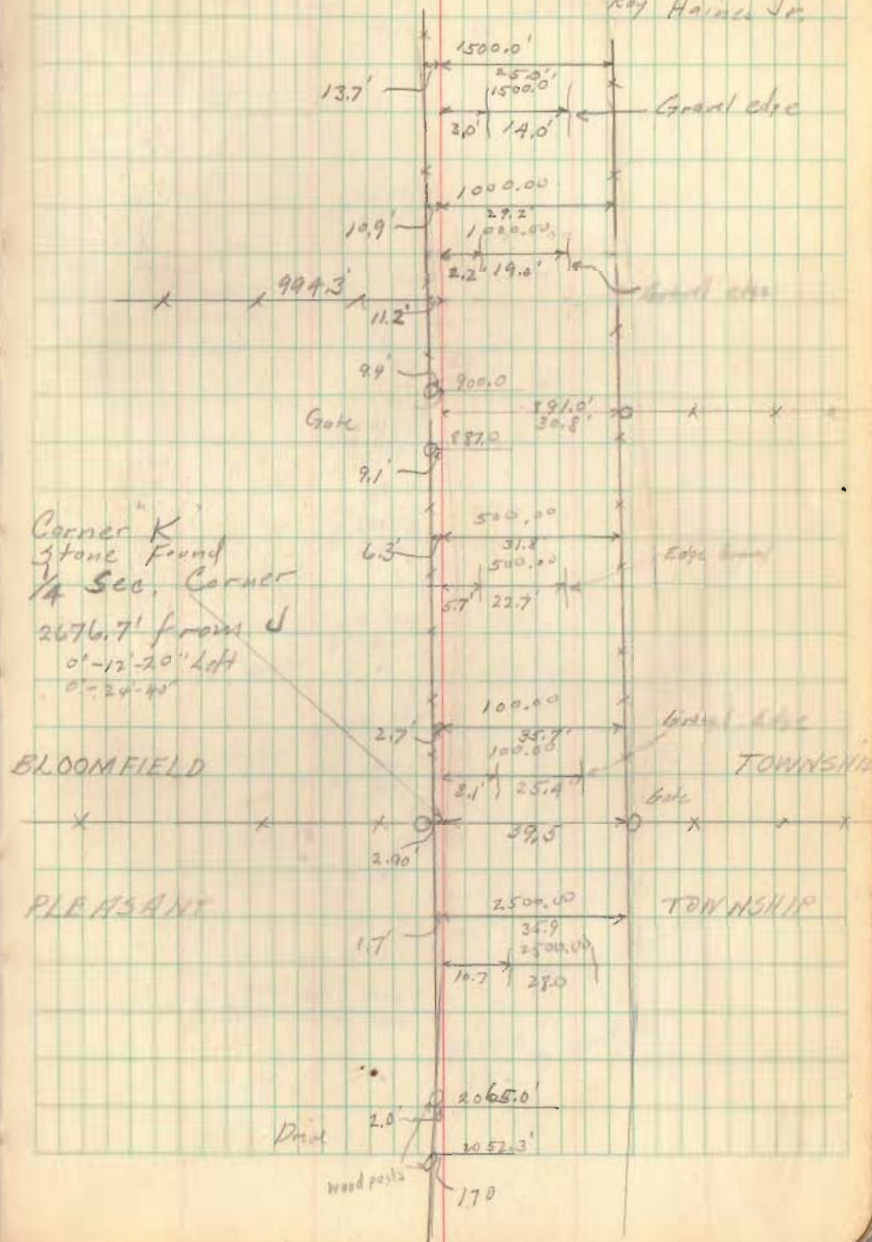 Ray Haines Jr.
1500.0'
25.0'
13.7'
1500.0'
3.0' 14.0'
Gravel edge
1000.00
29.2'
10.9'
1000.00
2.2' 19.0'
994.3'
11.2'
9.9'
900.0
Gate
891.0'
30.8'
887.0
9.1'
500.00
31.8'
6.3'
500.00
5.7' 22.7'
Edge
Corner "K"
Stone Found
1/4 Sec. Corner
2676.7' from J
0°-12'-20" Left
0°-24'-40"
100.00
35.7'
2.7'
100.00
8.1' 25.4'
Gravel Edge
BLOOMFIELD TOWNSHIP
Gate
39.5
2.90'
PLEASANT TOWNSHIP
2500.00
35.9
1.7'
2500.00
10.7 28.0
2065.0'
2.0'
2052.3'
wood posts